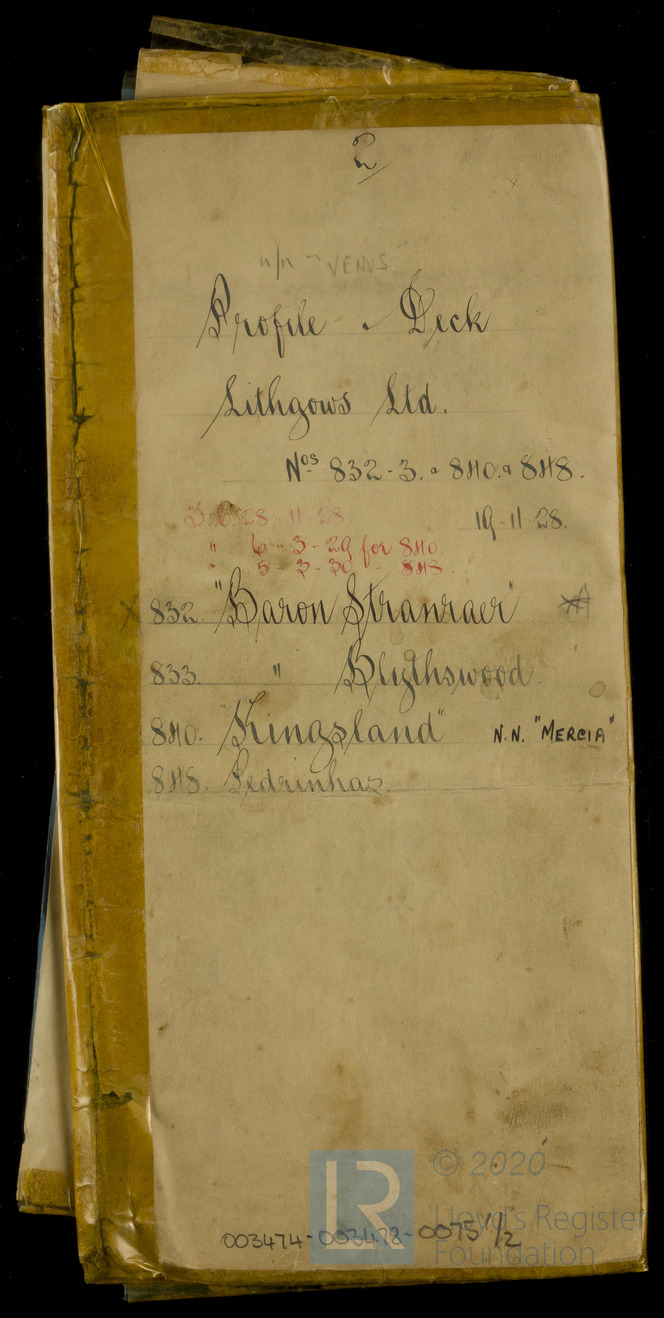 2
n/n - "VENUS"
Profile & Deck
Lithgows Ltd.
Nos 832-3. & 840. & 848.
28-11-28
19-11-28.
" 6-3-29 for 840.
" 5-3-30 " 848.
832. "Baron Stranraer"
833. " Blythswood
840. "Kingsland" N.N. "MERCIA"
848. Pedrinhas.
© 2020
LR Lloyd's Register
Foundation
003474-003478-0075/2